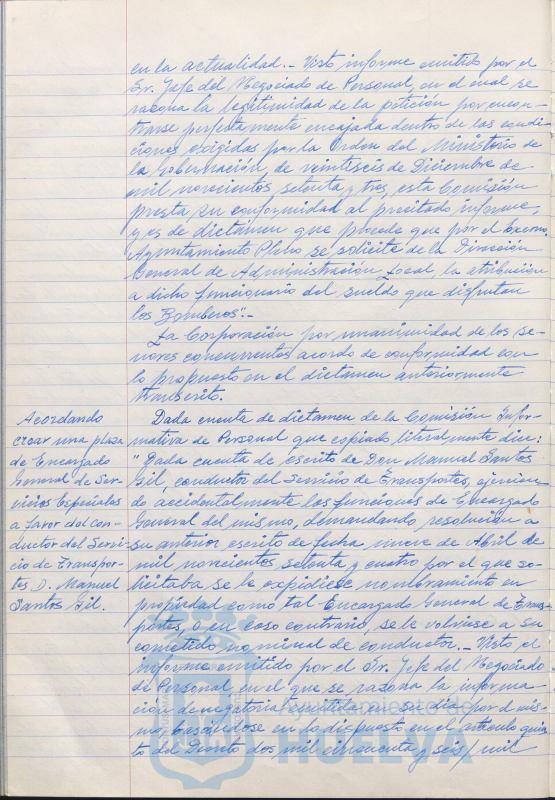 en la actualidad.- Visto informe emitido por el
Sr. Jefe del Negociado de Personal, en el cual se
razona la legitimidad de la petición por encon-
trarse perfectamente encajada dentro de las condi-
ciones exigidas por la Orden del Ministerio de
la Gobernación, de veintiseis de Diciembre de
mil novecientos setenta y tres, esta Comisión
presta su conformidad al precitado informe,
y es de dictámen que procede que por el Excmo.
Ayuntamiento Pleno se solicite de la Dirección
General de Administración Local, la atribución
a dicho funcionario del sueldo que disfrutan
los Bomberos".-
La Corporación por unanimidad de los se-
ñores concurrentes acordó de conformidad con
lo propuesto en el dictamen anteriormente
transcrito.
Acordando
crear una plaza
de Encargado
General de Ser-
vicios Especiales
a favor del con-
ductor del Servi-
cio de Transpor-
tes, D. Manuel
Santos Gil.
Dada cuenta de dictamen de la Comisión Infor-
mativa de Personal que copiado literalmente dice:
"Dada cuenta de escrito de Don Manuel Santos
Gil, conductor del Servicio de Transportes, ejercien-
do accidentalmente las funciones de Encargado
General del mismo, demandando resolución a
su anterior escrito de fecha nueve de Abril de
mil novecientos setenta y cuatro por el que so-
licitaba se le expidiese nombramiento en
propiedad como tal Encargado General de Trans-
portes, o en caso contrario, se le volviese a su
cometido nominal de conductor.- Visto el
informe emitido por el Sr. Jefe del Negociado
de Personal, en el que se razona la informa-
ción denegatoria emitida en su día por el mis-
mo, basándose en lo dispuesto en el artículo quin-
to del Decreto dos mil cincuenta y seis/mil
Ayuntamiento de
HUELVA